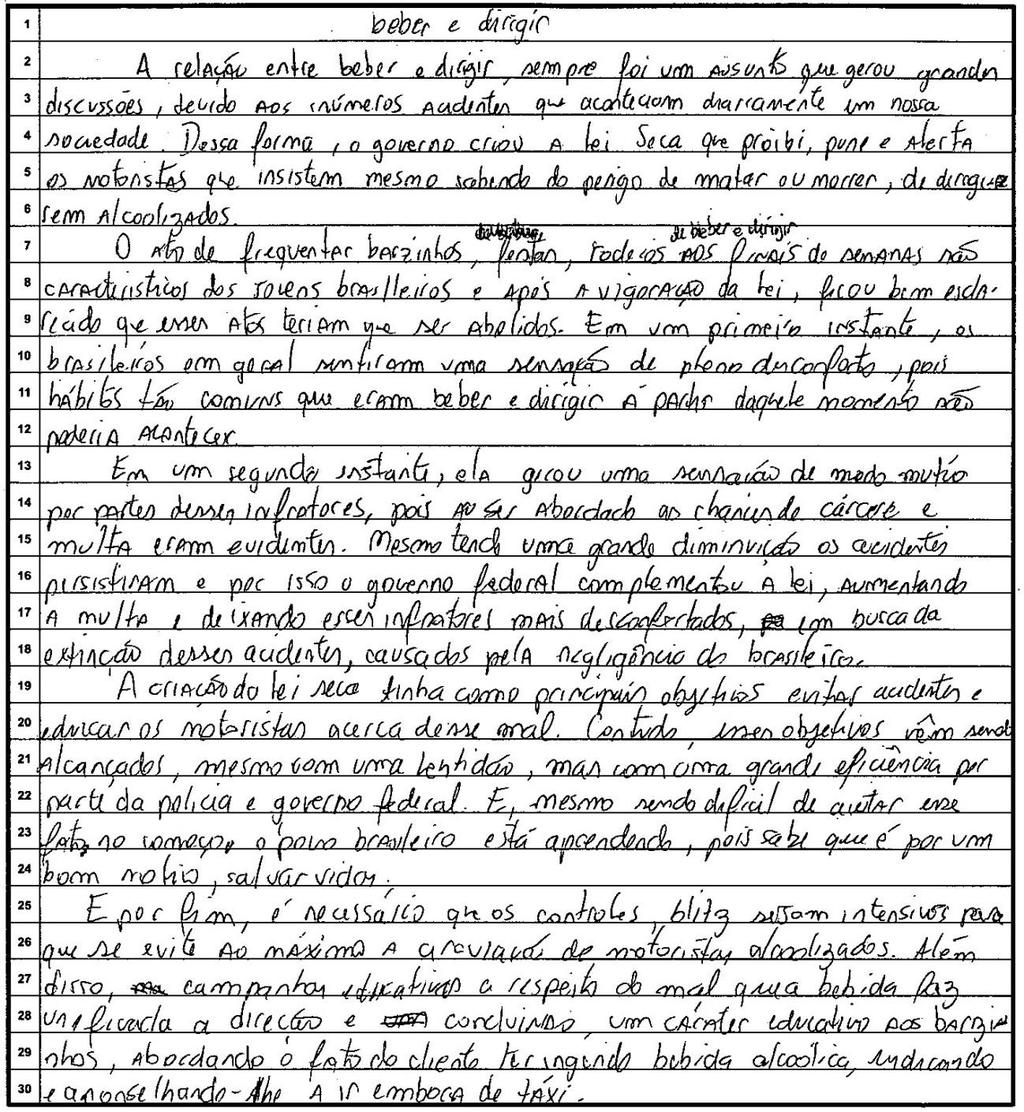 1 beber e dirigir
2 A relação entre beber e dirigir, sempre foi um assunto que gerou grandes
3 discussões, devido aos inúmeros acidentes que aconteciam diariamente em nossa
4 sociedade. Dessa forma, o governo criou a lei Seca que proibi, pune e alerta
5 os motoristas que insistem mesmo sabendo do perigo de matar ou morrer, de dirigi-
6 rem alcoolizados.
de beber e dirigir
7 O ato de frequentar barzinhos, festas, rodeios aos finais de semanas são
8 característicos dos jovens brasileiros e após a vigoração da lei, ficou bem escla-
9 recido que esses atos teriam que ser abolidos. Em um primeiro instante, os
10 brasileiros em geral sentiram uma sensação de pleno desconforto, pois
11 hábitos tão comuns que eram beber e dirigir a partir daquele momento não
12 poderia acontecer.
13 Em um segundo instante, ela gerou uma sensação de medo mutio
14 por partes desses infratores, pois ao ser abordado as chances de cárcere e
15 multa eram evidentes. Mesmo tendo uma grande diminuição os acidentes
16 persistiram e por isso o governo federal complementou a lei, aumentando
17 a multa e deixando esses infratores mais desconfortados, em busca da
18 extinção desses acidentes, causados pela negligência do brasileiro.
19 A criação do lei seca tinha como principais objetivos evitar acidentes e
20 educar os motoristas acerca desse mal. Contudo, esses objetivos vêm sendo
21 alcançados, mesmo com uma lentidão, mas com uma grande eficiência por
22 parte da polícia e governo federal. E, mesmo sendo dificil de aceitar esse
23 fato no começo, o povo brasileiro está aprendendo, pois sabe que é por um
24 bom motivo, salvar vidas.
25 E por fim, é necessário que os controles, blitz sejam intensivos para
26 que se evite ao máximo a de motoristas alcoolizados. Além
27 disso, campanhas educativas a respeito do mal que a bebida faz
28 a direção e concluindo, um caráter educativo aos barzi-
29 nhos, abordando o fato do cliente ter ingerido bebida alcoolica, indicando
30 e aconselhando-lhe a ir embora de táxi.